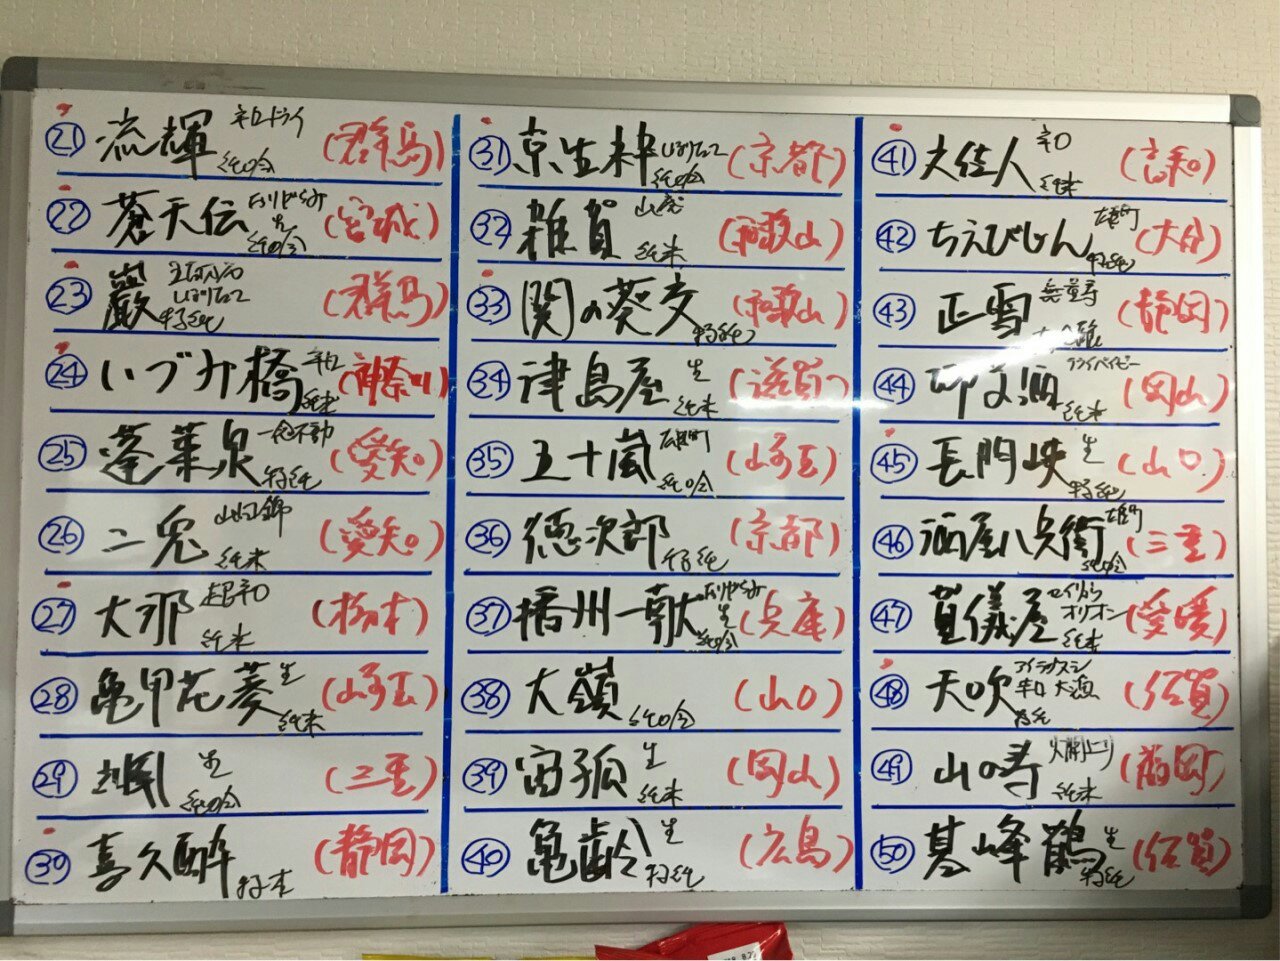 21 流輝 辛口ドライ 純吟 (群馬)
22 蒼天伝 おりがらみ 生 純吟 (宮城)
23 巖 しぼりたて 特純 (群馬)
24 いづみ橋 辛口 純米 (神奈川)
25 蓬莱泉 一念不動 特純 (愛知)
26 二兎 山田錦 純米 (愛知)
27 大那 超辛口 純米 (栃木)
28 亀甲花菱 生 純米 (埼玉)
29 生 純吟 (三重)
30 喜久酔 特本 (静岡)
31 京生粋 しぼりたて 純吟 (京都)
32 雑賀 山廃 純米 (和歌山)
33 関の葵 特純 (和歌山)
34 津島屋 生 純米 (滋賀)
35 五十嵐 雄町 純吟 (埼玉)
36 徳次郎 特純 (京都)
37 播州一献 おりがらみ 生 純吟 (兵庫)
38 大嶺 純吟 (山口)
39 宙狐 生 純米 (岡山)
40 亀齢 生 特純 (広島)
41 大佳人 辛口 純米 (高知)
42 ちえびじん 雄町 特純 (大分)
43 正雪 (静岡)
44 純米 (岡山)
45 長門峡 生 特純 (山口)
46 酒屋八兵衛 雄町 純吟 (三重)
47 賀儀屋 オリオン 純米 (愛媛)
48 天吹 辛口 特純 (佐賀)
49 山の寿 火開止り 純米 (福岡)
50 基峰鶴 生 特純 (佐賀)